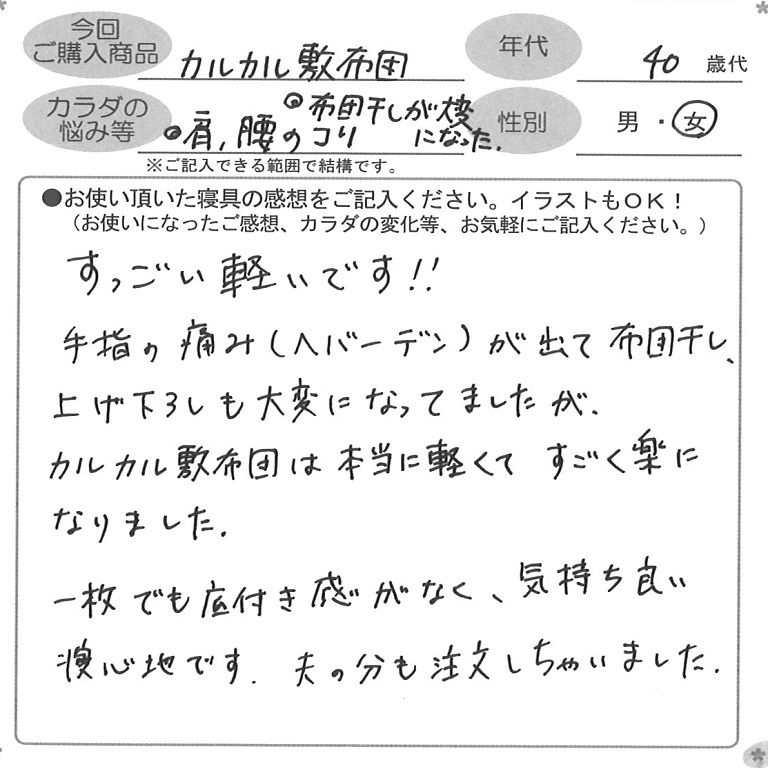 今回
ご購入商品
カルカル敷布団
年代
40 歳代
カラダの
悩み等
●布団干しが大変
●肩,腰のコリ になった.
性別
男・女
※ご記入できる範囲で結構です。
●お使い頂いた寝具の感想をご記入ください。イラストもOK！
（お使いになったご感想、カラダの変化等、お気軽にご記入ください。）
すっごい軽いです!!
手指の痛み(ヘバーデン)が出て布団干し、
上げ下ろしも大変になってましたが、
カルカル敷布団は本当に軽くてすごく楽に
なりました.
一枚でも底付き感がなく、気持ち良い
寝心地です.夫の分も注文しちゃいました.